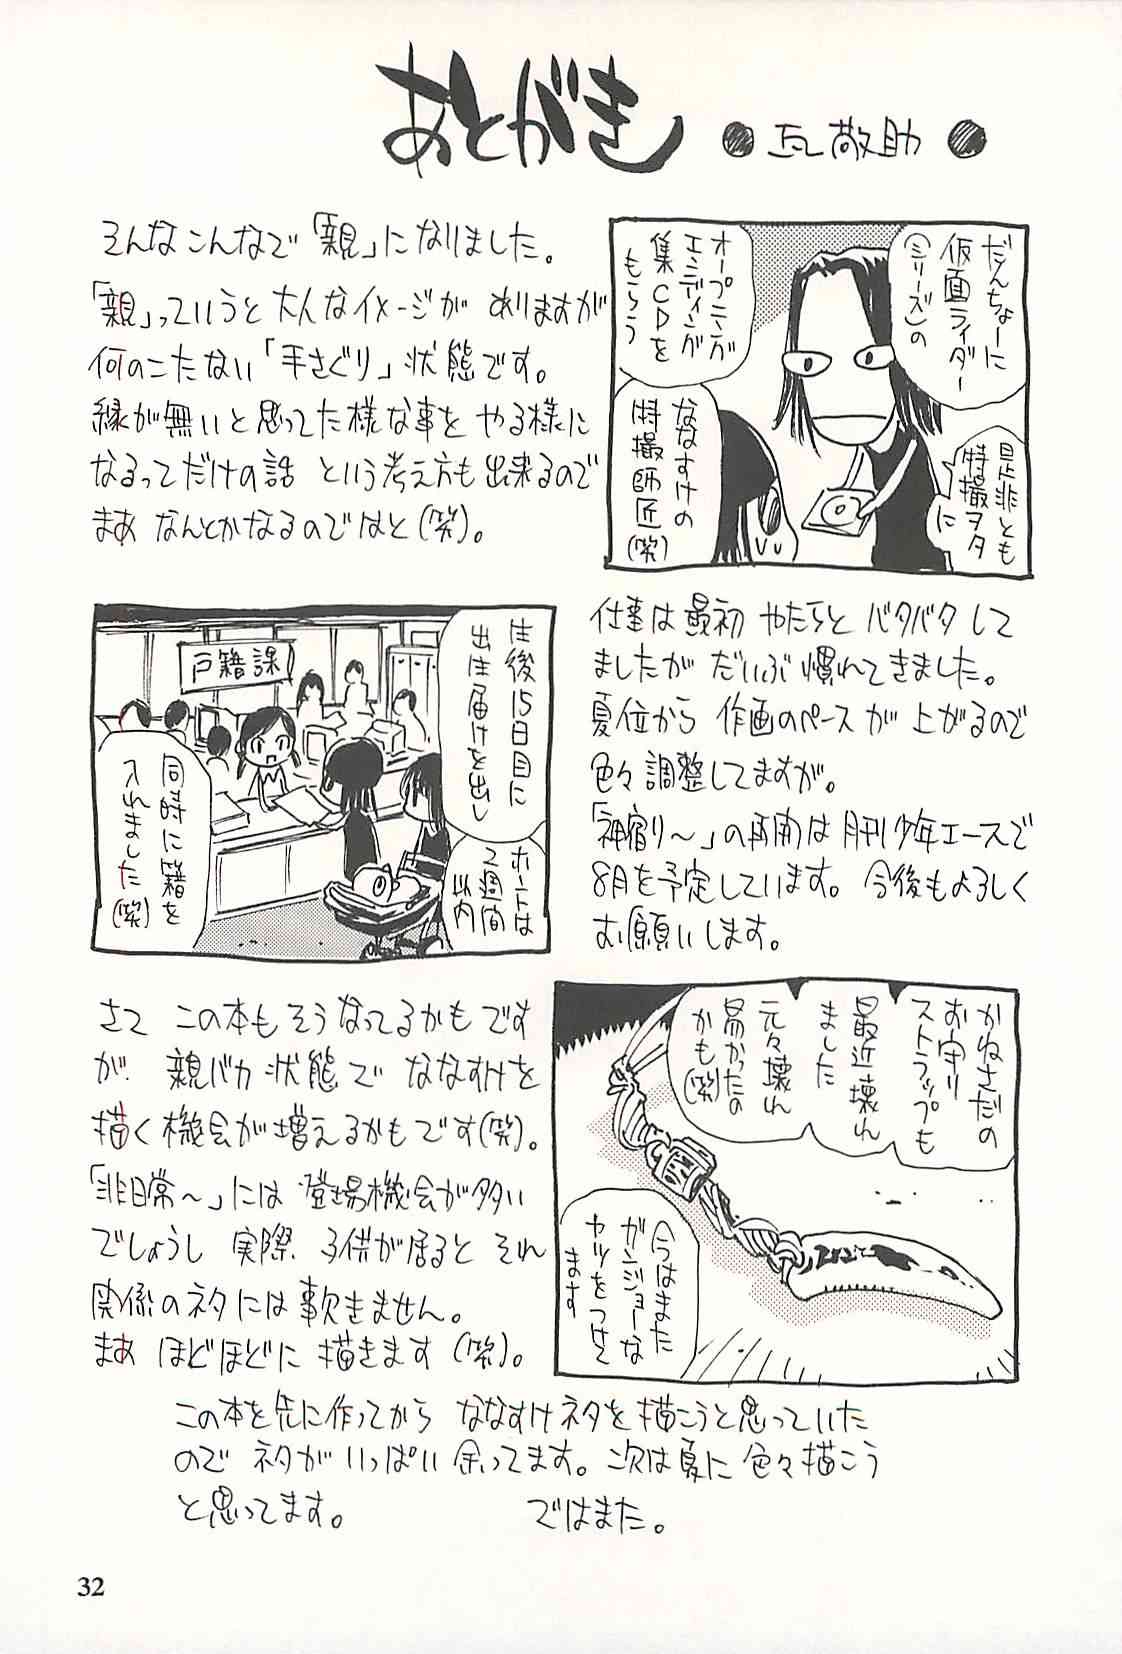 あとがき
●瓦敬助●
そんなこんなで「親」になりました。
「親」っていうと大人なイメージがありますが
何のこたない「手さぐり」状態です。
縁が無いと思ってた様な事をやる様に
なるってだけの話 という考え方も出来るので
まぁ なんとかなるのではと(笑)。
だんちょーに
仮面ライダー
(シリーズ)の
オープニング
エンディング
集CDを
もらう
是非とも
特撮ヲタ
に
ななすけの
特撮師匠
(笑)
仕事は最初 やたらと バタバタして
ましたが だいぶ慣れてきました。
夏位から 作画のペースが上がるので
色々調整してますが。
「神宿り～」の再開は月刊少年エースで
8月を予定しています。今後もよろしく
お願いします。
生後15日目に
出生届けを出し
ホントは
2週間
以内
戸籍課
同時に籍を
入れました(笑)
さて この本もそうなってるかもです
が 親バカ状態で ななすけを
描く機会が増えるかもです(笑)。
「非日常～」には 登場機会が多い
でしょうし 実際 子供が居ると それ
関係のネタには事欠きません。
まぁ ほどほどに 描きます(笑)。
かねさだの
お守り
ストラップも
最近壊れ
ました
元々壊れ
易かったの
かも(笑)
今はまた
ガンジョーな
ヤツをつけて
ます
この本を先に作ってから ななすけネタを描こうと思っていた
ので ネタがいっぱい余ってます。次は夏に色々描こう
と思ってます。 ではまた。
32